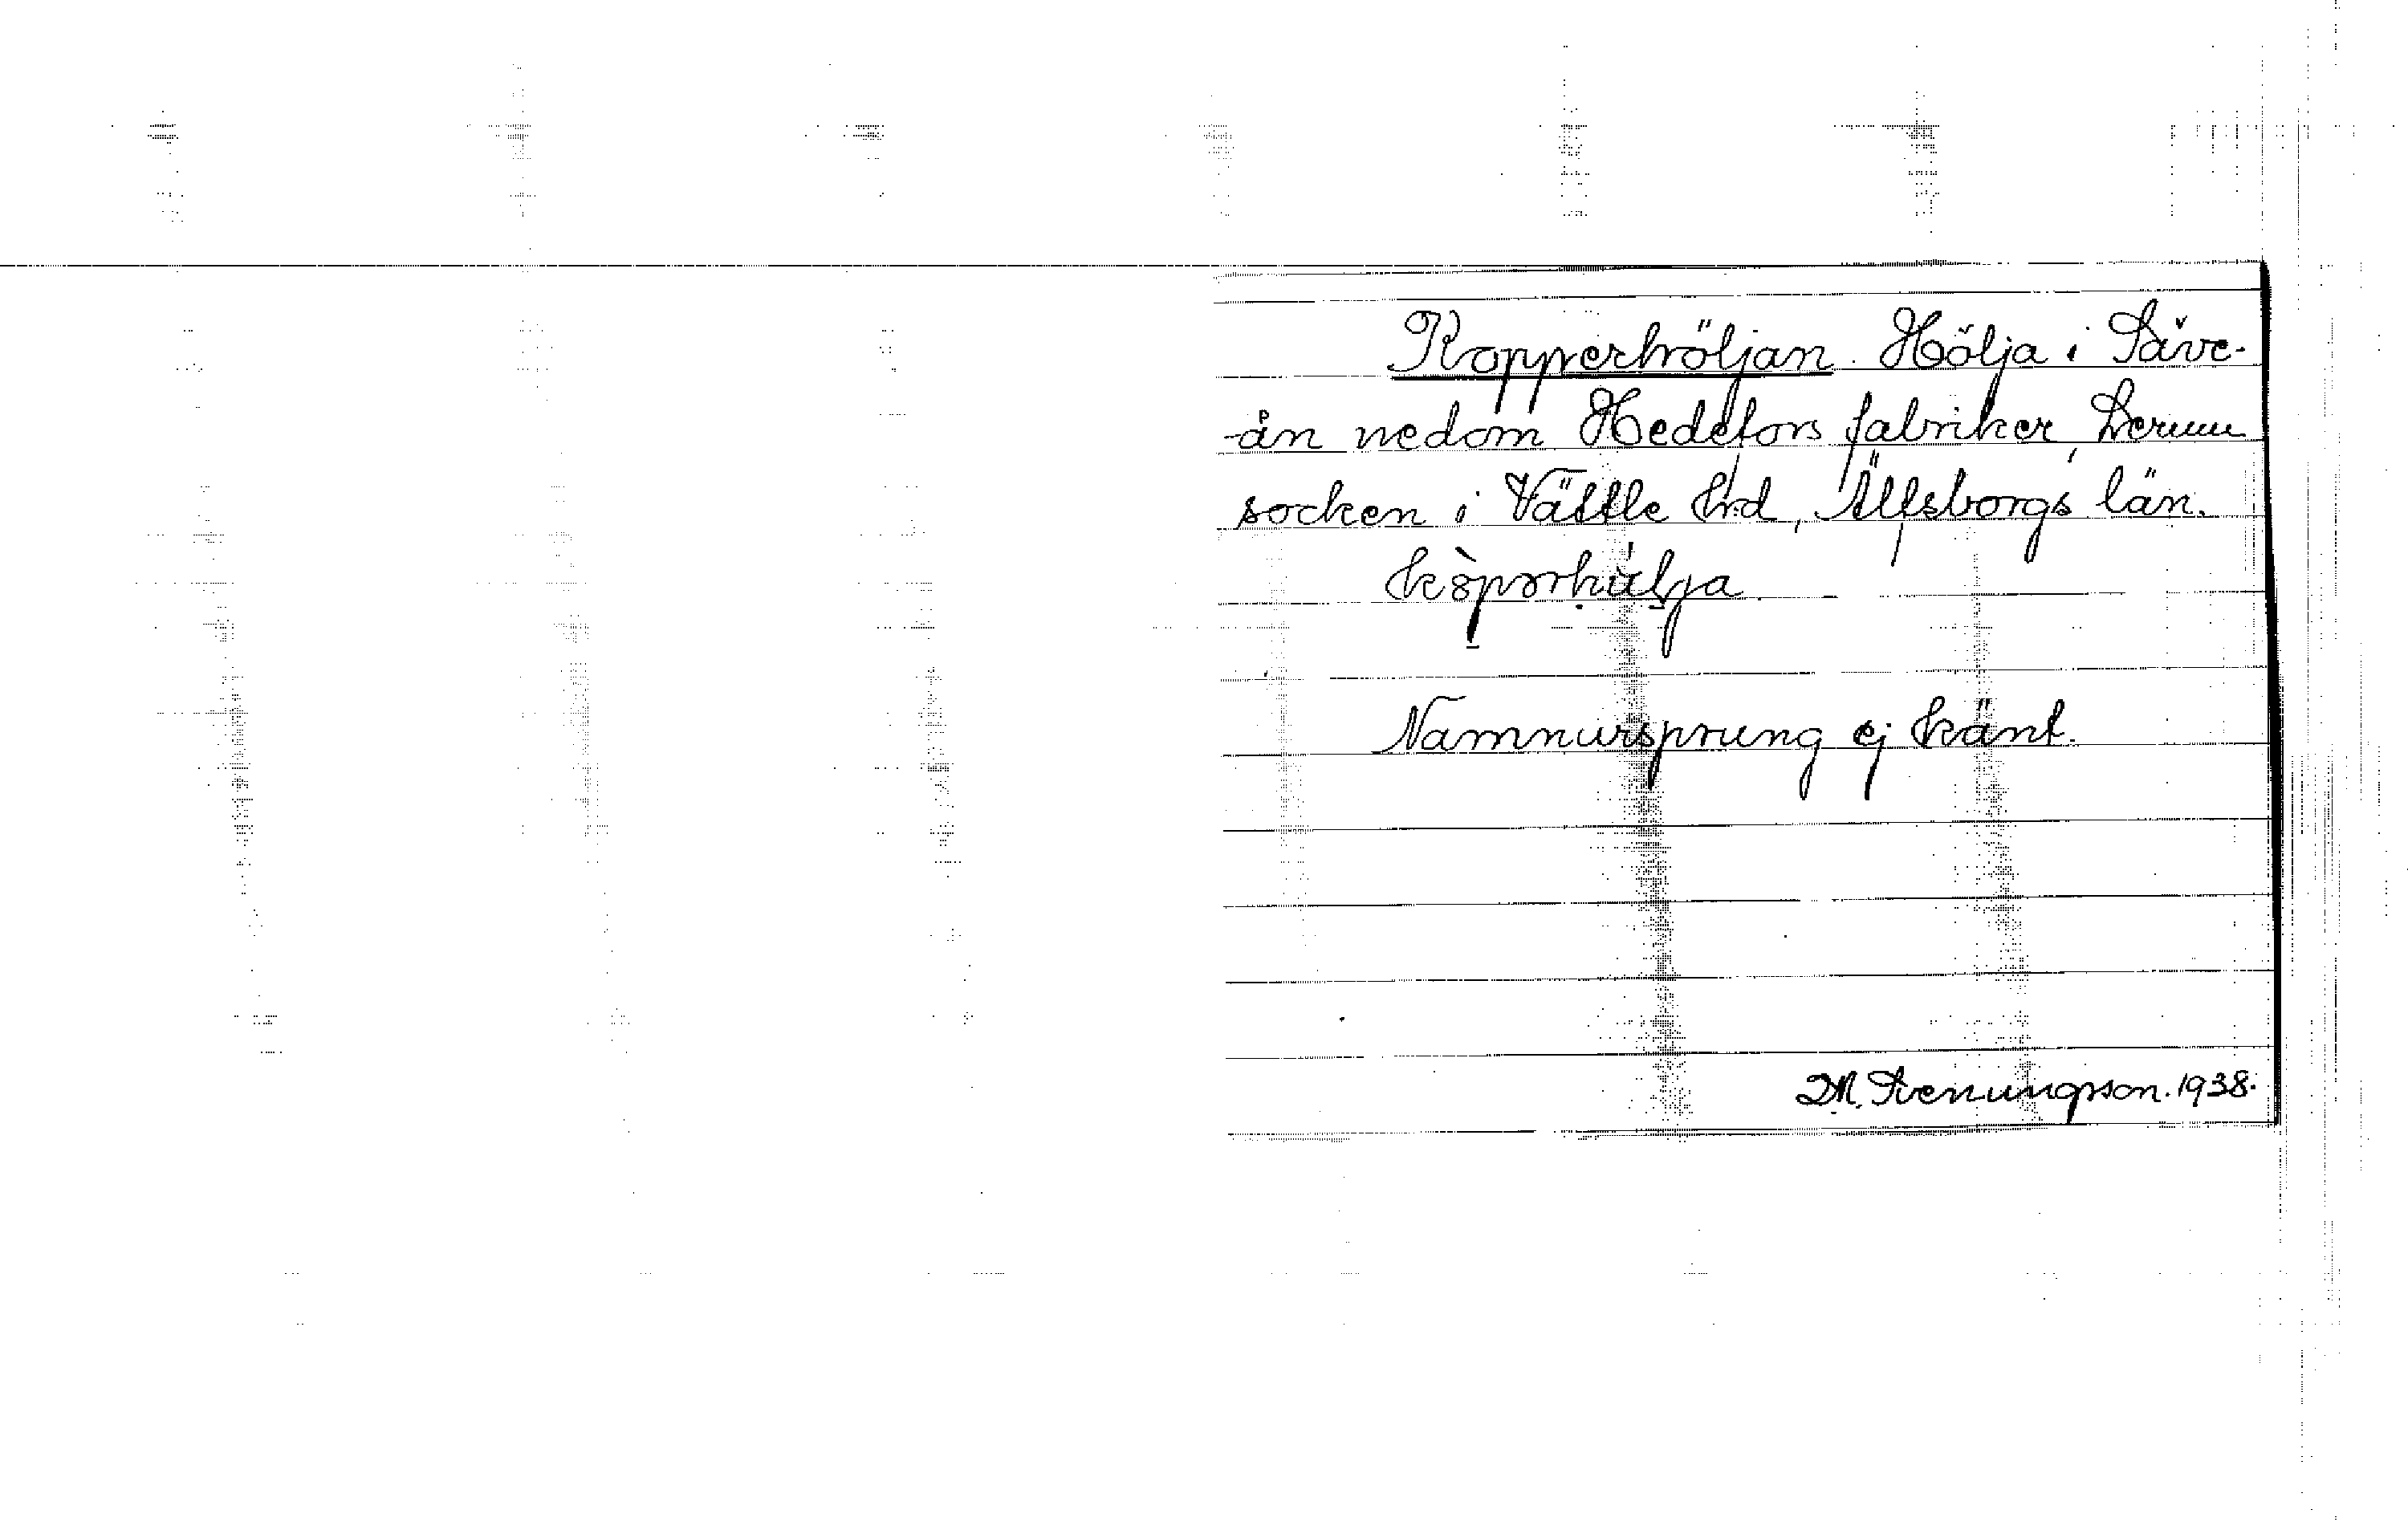 Kopperhöljan. Hölja i Säve-
-ån nedom Hedefors fabriker, Lerum
socken i Vättle hrd, Älfsborgs län.
Namnursprung ej känt.
D.M. Stenungsson. 1938.